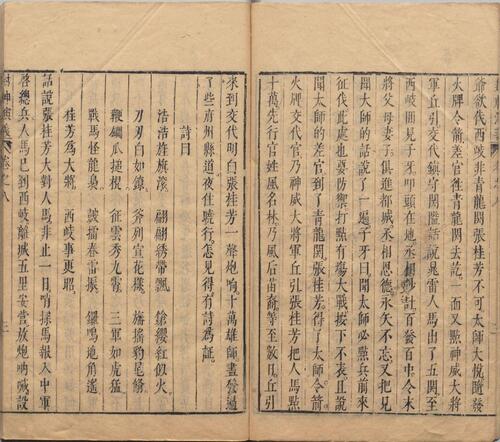 爺欲伐西岐非青龍關張桂芳不可太師大悅隨發
火牌令箭差官徃青龍關去訖一面又點神威大將
軍丘引交代鎮守關隘話說晁雷人馬出了五關至
西岐回見子牙叩頭在地丞相妙計百發百中今末
將父母妻子俱進都城丞相恩德永矢不忘又把見
聞太師的話說了一遍子牙曰聞太師必點兵前來
征伐此處也要防禦打點有塲大戰按下不表且說
聞太師的差官到了青龍關張桂芳得了太師令箭
火牌交代官乃神威大將軍丘引張桂芳把人馬點
十萬先行官姓風名林乃風后苗裔等至數日丘引
來到交代明白張桂芳一聲炮响十萬雄師盡發過
了些府州縣道夜住曉行怎見得有詩為証
詩曰
浩浩旌旗滾 翩翩綉帶飄 鎗纓紅似火
刀刃白如鐐 斧列宣花樣 旛搖豹尾絛
鞭鐧瓜搥棍 征雲透九霄 三軍如虎猛
戰馬怪龍梟 鼓擂春雷振 鑼鳴地角遙
桂芳爲大將 西岐事更昭
話說張桂芳大對人馬非止一日哨探馬報入中軍
啓總兵人馬已到西岐離城五里安營放炮吶喊設
封神演義 卷之八 三